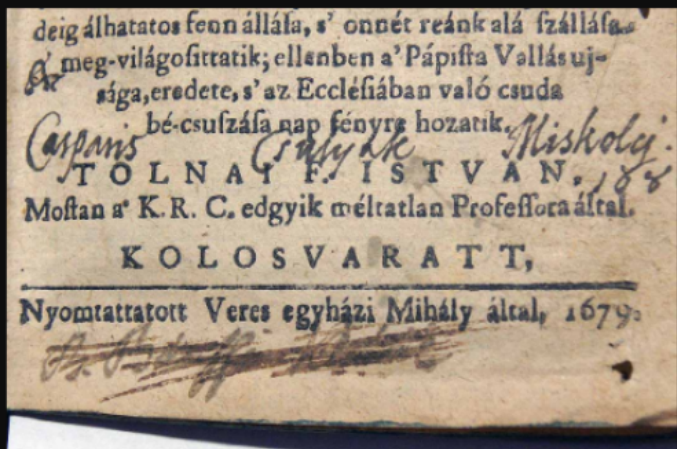 deig álhatatos fenn állása, s' onnét reánk alá szállása
meg-világosittatik; ellenben a' Pápista Vallás uj-
sága, eredete, s' az Ecclésiában való csuda
bé-csuszása nap fényre hozatik.
Casparis Csulyak Miskolcj.
TOLNAI F. ISTVAN,
Mostan a' K. R. C. edgyik méltatlan Professora által.
KOLOSVARATT,
Nyomtattatott Veres egyházi Mihály által, 1679.